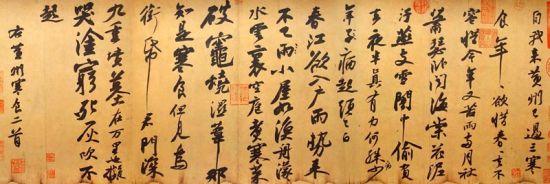 自我來黃州已過三寒
食年〃欲惜春〃去不
容惜今年又苦雨兩月秋
蕭瑟臥聞海棠花泥
汙燕支雪闇中偷負
去夜半真有力何殊少
年子病起頭已白
春江欲入戶雨勢來
不已雨小屋如漁舟濛〃
水雲裏空庖煮寒菜
破竈燒濕葦那
知是寒食但見烏
銜帋君門深
九重墳墓在万里也擬
哭塗窮死灰吹不
起
右黃州寒食二首